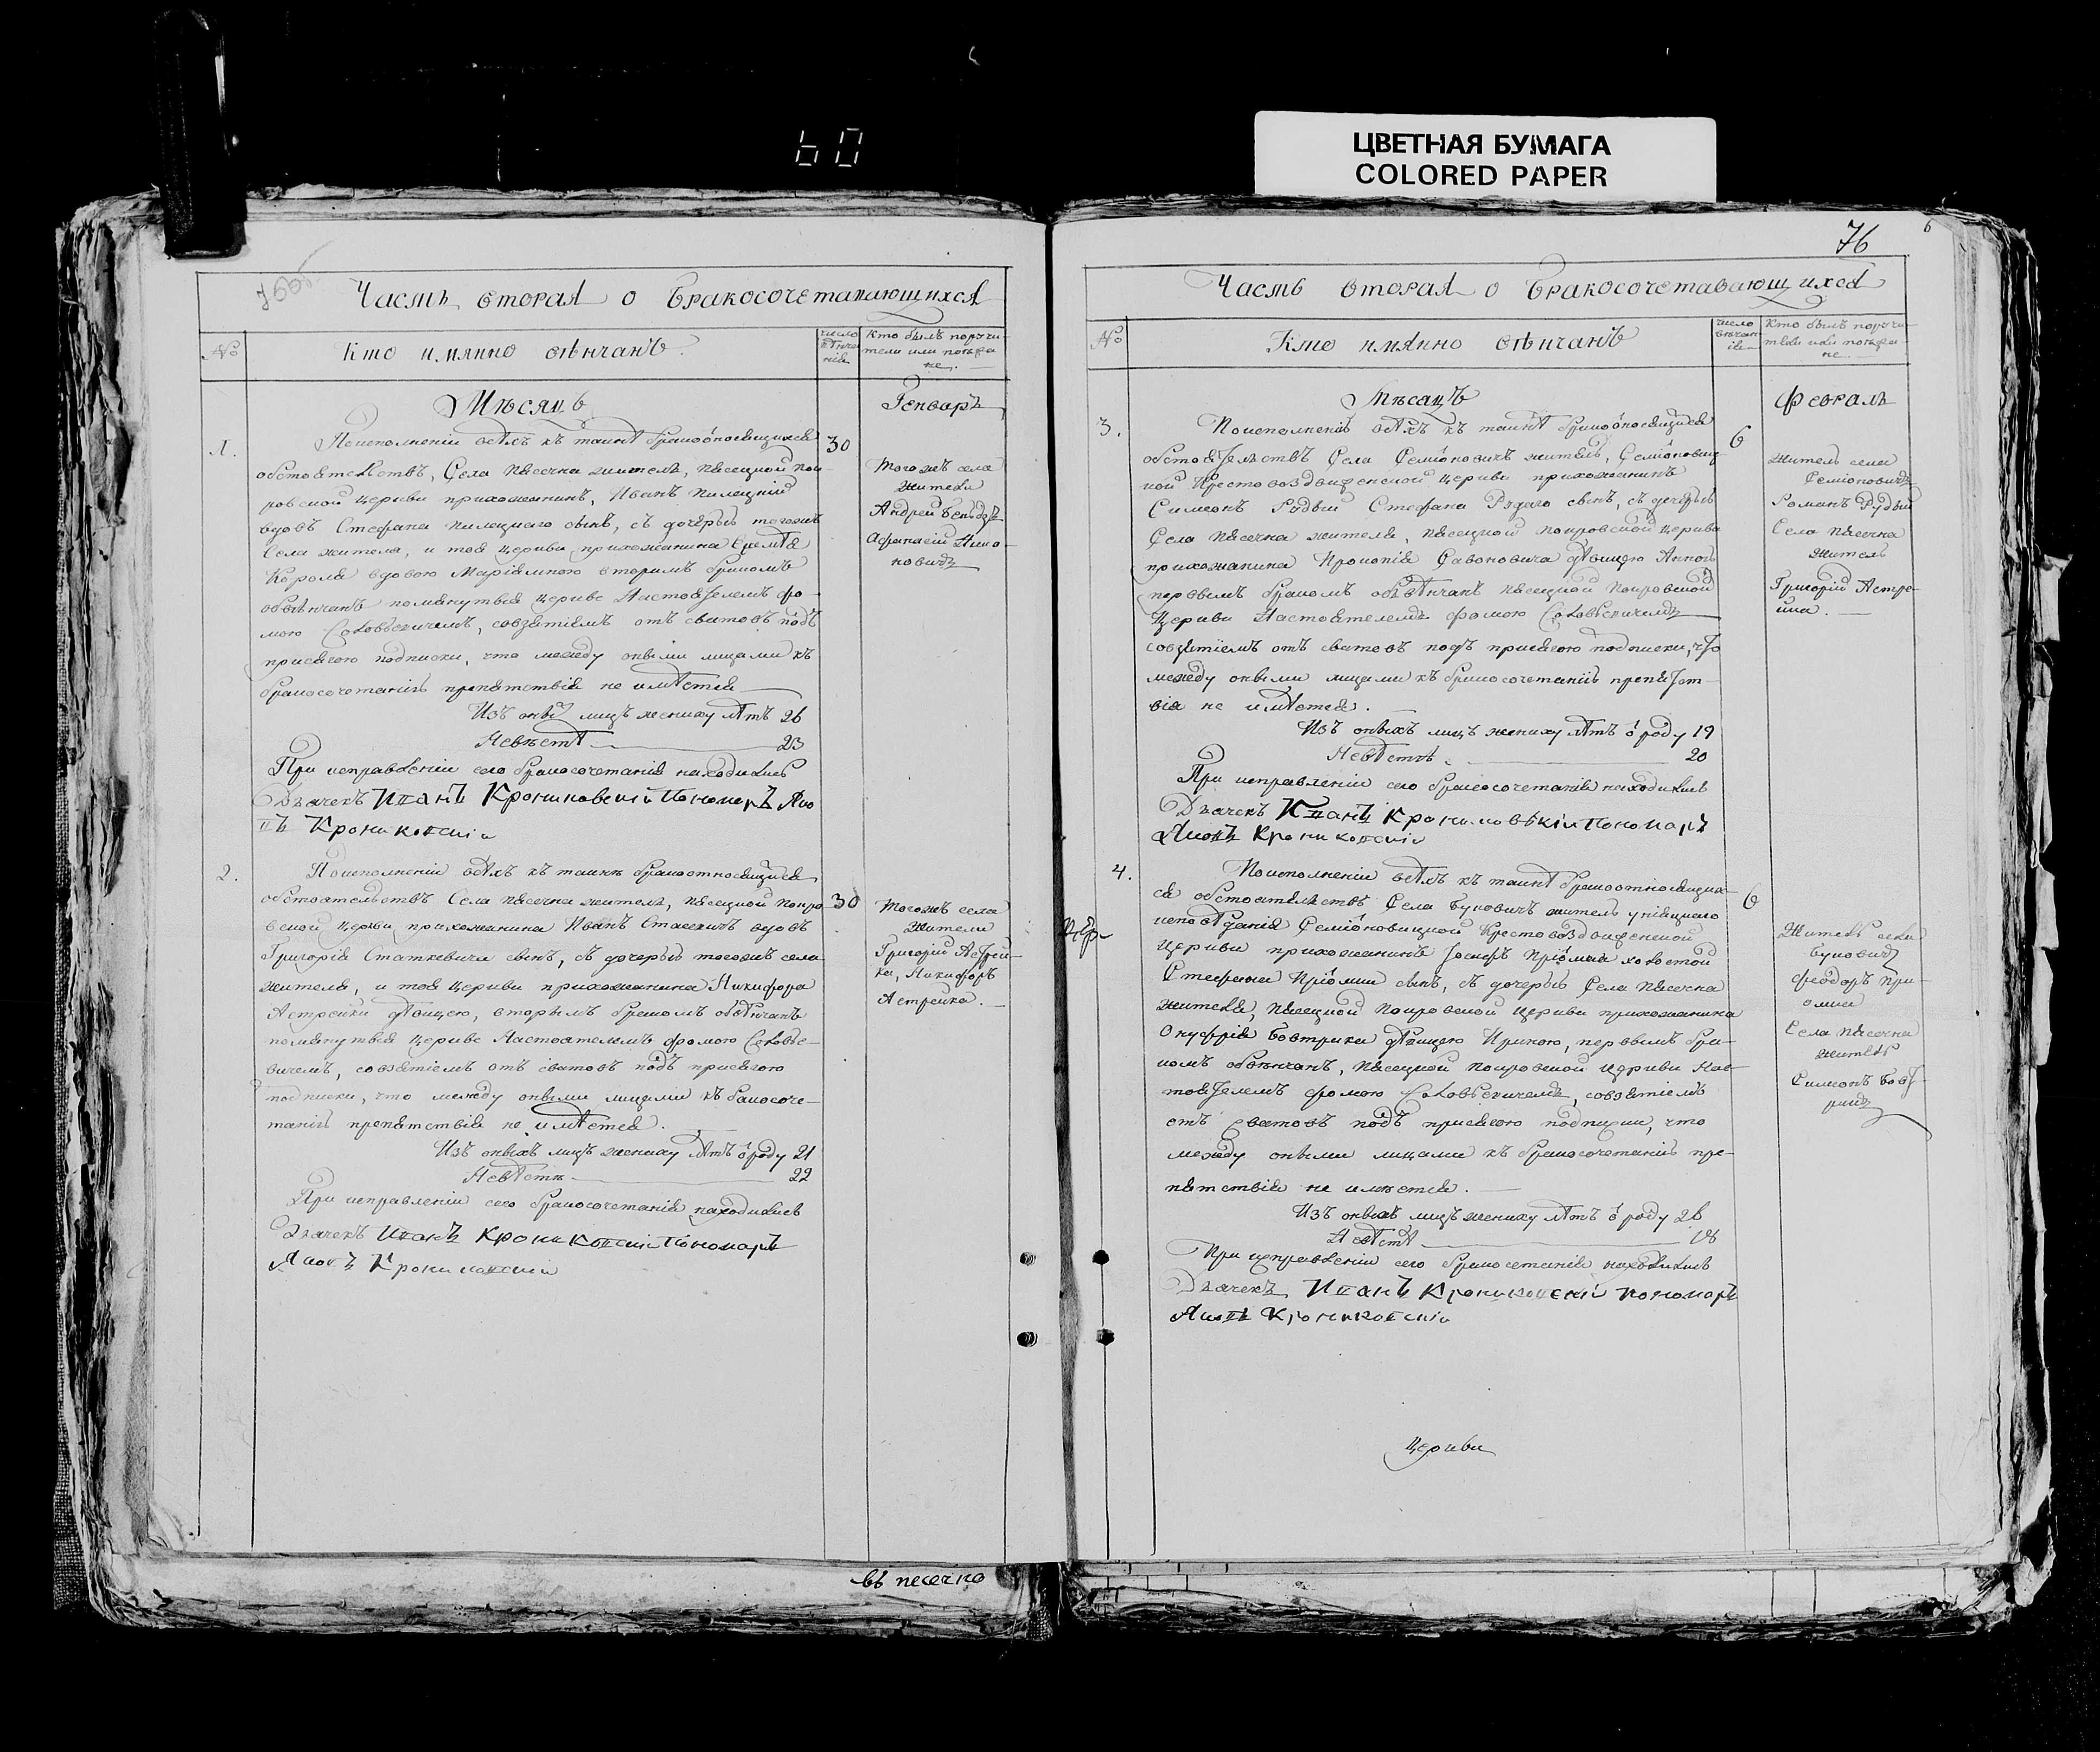 60
ЦВЕТНАЯ БУМАГА
COLORED PAPER
Часть вторая о Бракосочетавающихся
№
Кто имянно вѣнчанъ
число вѣнча-
нія
Кто былъ поручи-
тели или поѣзжа-
не.
Мѣсяцъ
Генварь
1.
По исполненіи всѣхъ къ таинѣ бракоотносящихся
обстоятельствъ, Села Пасечна жителъ, Пасецкой Пок-
ровской церкви прихожанинъ, Иванъ Пилецкій
вдовъ Стефана Пилецкаго сынъ, съ дочерью тогожъ
Села жителя, и тоя церкви прихожанина Еремѣя
Короля вдовою Маріамною вторымъ бракомъ
обвѣнчанъ помянутыя церкве Настоятелемъ Фо-
мою Соловьевичемъ, совзятіемъ отъ сватовъ подъ
присягою подписки, что между оными лицами къ
бракосочетанію препятствія не имѣется
Изъ оныхъ лицъ жениху лѣтъ 26
Невѣстѣ 23
При исправленіи сего бракосочетанія находились
Дьячекъ Иванъ Крониковскій Пономарь Яко
въ Крониковскій
30
Тогожъ села
Жители
Андрей
Афанасій
2.
По исполненіи всѣхъ къ таинѣ бракоотносящихся
обстоятельствъ Села Пасечна жителъ, Пасецкой Покро
вской церкви прихожанина Иванъ Стасевичъ вдовъ
Григорія Статкевича сынъ, съ дочерью тогожъ села
жителя, и тоя церкви прихожанина Никифора
Астрейки дѣвицею, вторымъ бракомъ обвѣнчанъ
помянутыя церкве Настоятелемъ Фомою Соловье-
вичемъ, совзятіемъ отъ сватовъ подъ присягою
подписки, что между оными лицами къ бракосоче-
танію препятствія не имѣется.
Изъ оныхъ лицъ жениху лѣтъ ѿ роду 21
Невѣстѣ 22
При исправленіи сего бракосочетанія находились
Дьячекъ Иванъ Крониковскій Пономарь
Яковъ Крониковскій
30
Тогожъ села
Жители
Григорій Астрей-
ка, Никифоръ
Астрейка.
въ песечно
76
6
Часть вторая о Бракосочетавающихся
№
Кто имянно вѣнчанъ
число
вѣнчан-
ія
Кто былъ поручи-
тели или поѣзжа-
не.
Мѣсацъ
Февраль
3.
По исполненіи всѣхъ къ таинѣ бракоотносящихся
обстоятельствъ Села Семіоновичъ житель, Семіонович-
кой Крестовоздвиженской церкви прихожанинъ
Симеонъ Рудый Стефана Рудаго сынъ, съ дочерью
Села Пасечна жителя, Пасецкой Покровской церкви
прихожанина Прокопія Савоновича дѣвицею Анною
первымъ бракомъ обвѣнчанъ Пасецкой Покровской
Церкви Настоятелемъ Фомою Соловьевичемъ
совзятіемъ отъ сватовъ подъ присягою подписки, что
между оными лицами къ бракосочетанію препятст-
вія не имѣется.
Изъ оныхъ лицъ жениху лѣтъ ѿ роду 19
Невѣстѣ 20
При исправленіи сего бракосочетанія находились
Дьячекъ Иванъ Крониковскій Пономарь
Яковъ Крониковскій
6
Житель села
Семіоновичъ
Романъ Рудый
Села Пасечна
житель
Григорій Астре-
йка.
4.
По исполненіи всѣхъ къ таинѣ бракоотносящих-
ся обстоятельствъ Села Буковичъ житель уніацкаго
исповѣданія Семіоновицкой Крестовоздвиженской
Церкви прихожанинъ Іосифъ Пріомка холостой
Стефана Пріомки сынъ, съ дочерью Села Пасечна
жителя, Пасецкой Покровской церкви прихожанина
Онуфрія Бовтрика дѣвицею Ириною, первымъ бра-
комъ обвѣнчанъ, Пасецкой Покровской церкви Нас-
тоятелемъ Фомою Соловьевичемъ, совзятіемъ
отъ сватовъ подъ присягою подписки, что
между оными лицами къ бракосочетанію пре-
пятствія не имѣется.
Изъ оныхъ лицъ жениху лѣтъ ѿ роду 26
Невѣстѣ 18
При исправленіи сего бракосетанія находились
Дьячекъ Иванъ Крониковскій пономарь
Яковъ Крониковскій
6
Житель села
Буковичъ
Феодоръ Прі-
омка
Села Пасечна
житель
Симеонъ Бовт-
рикъ
Церкви